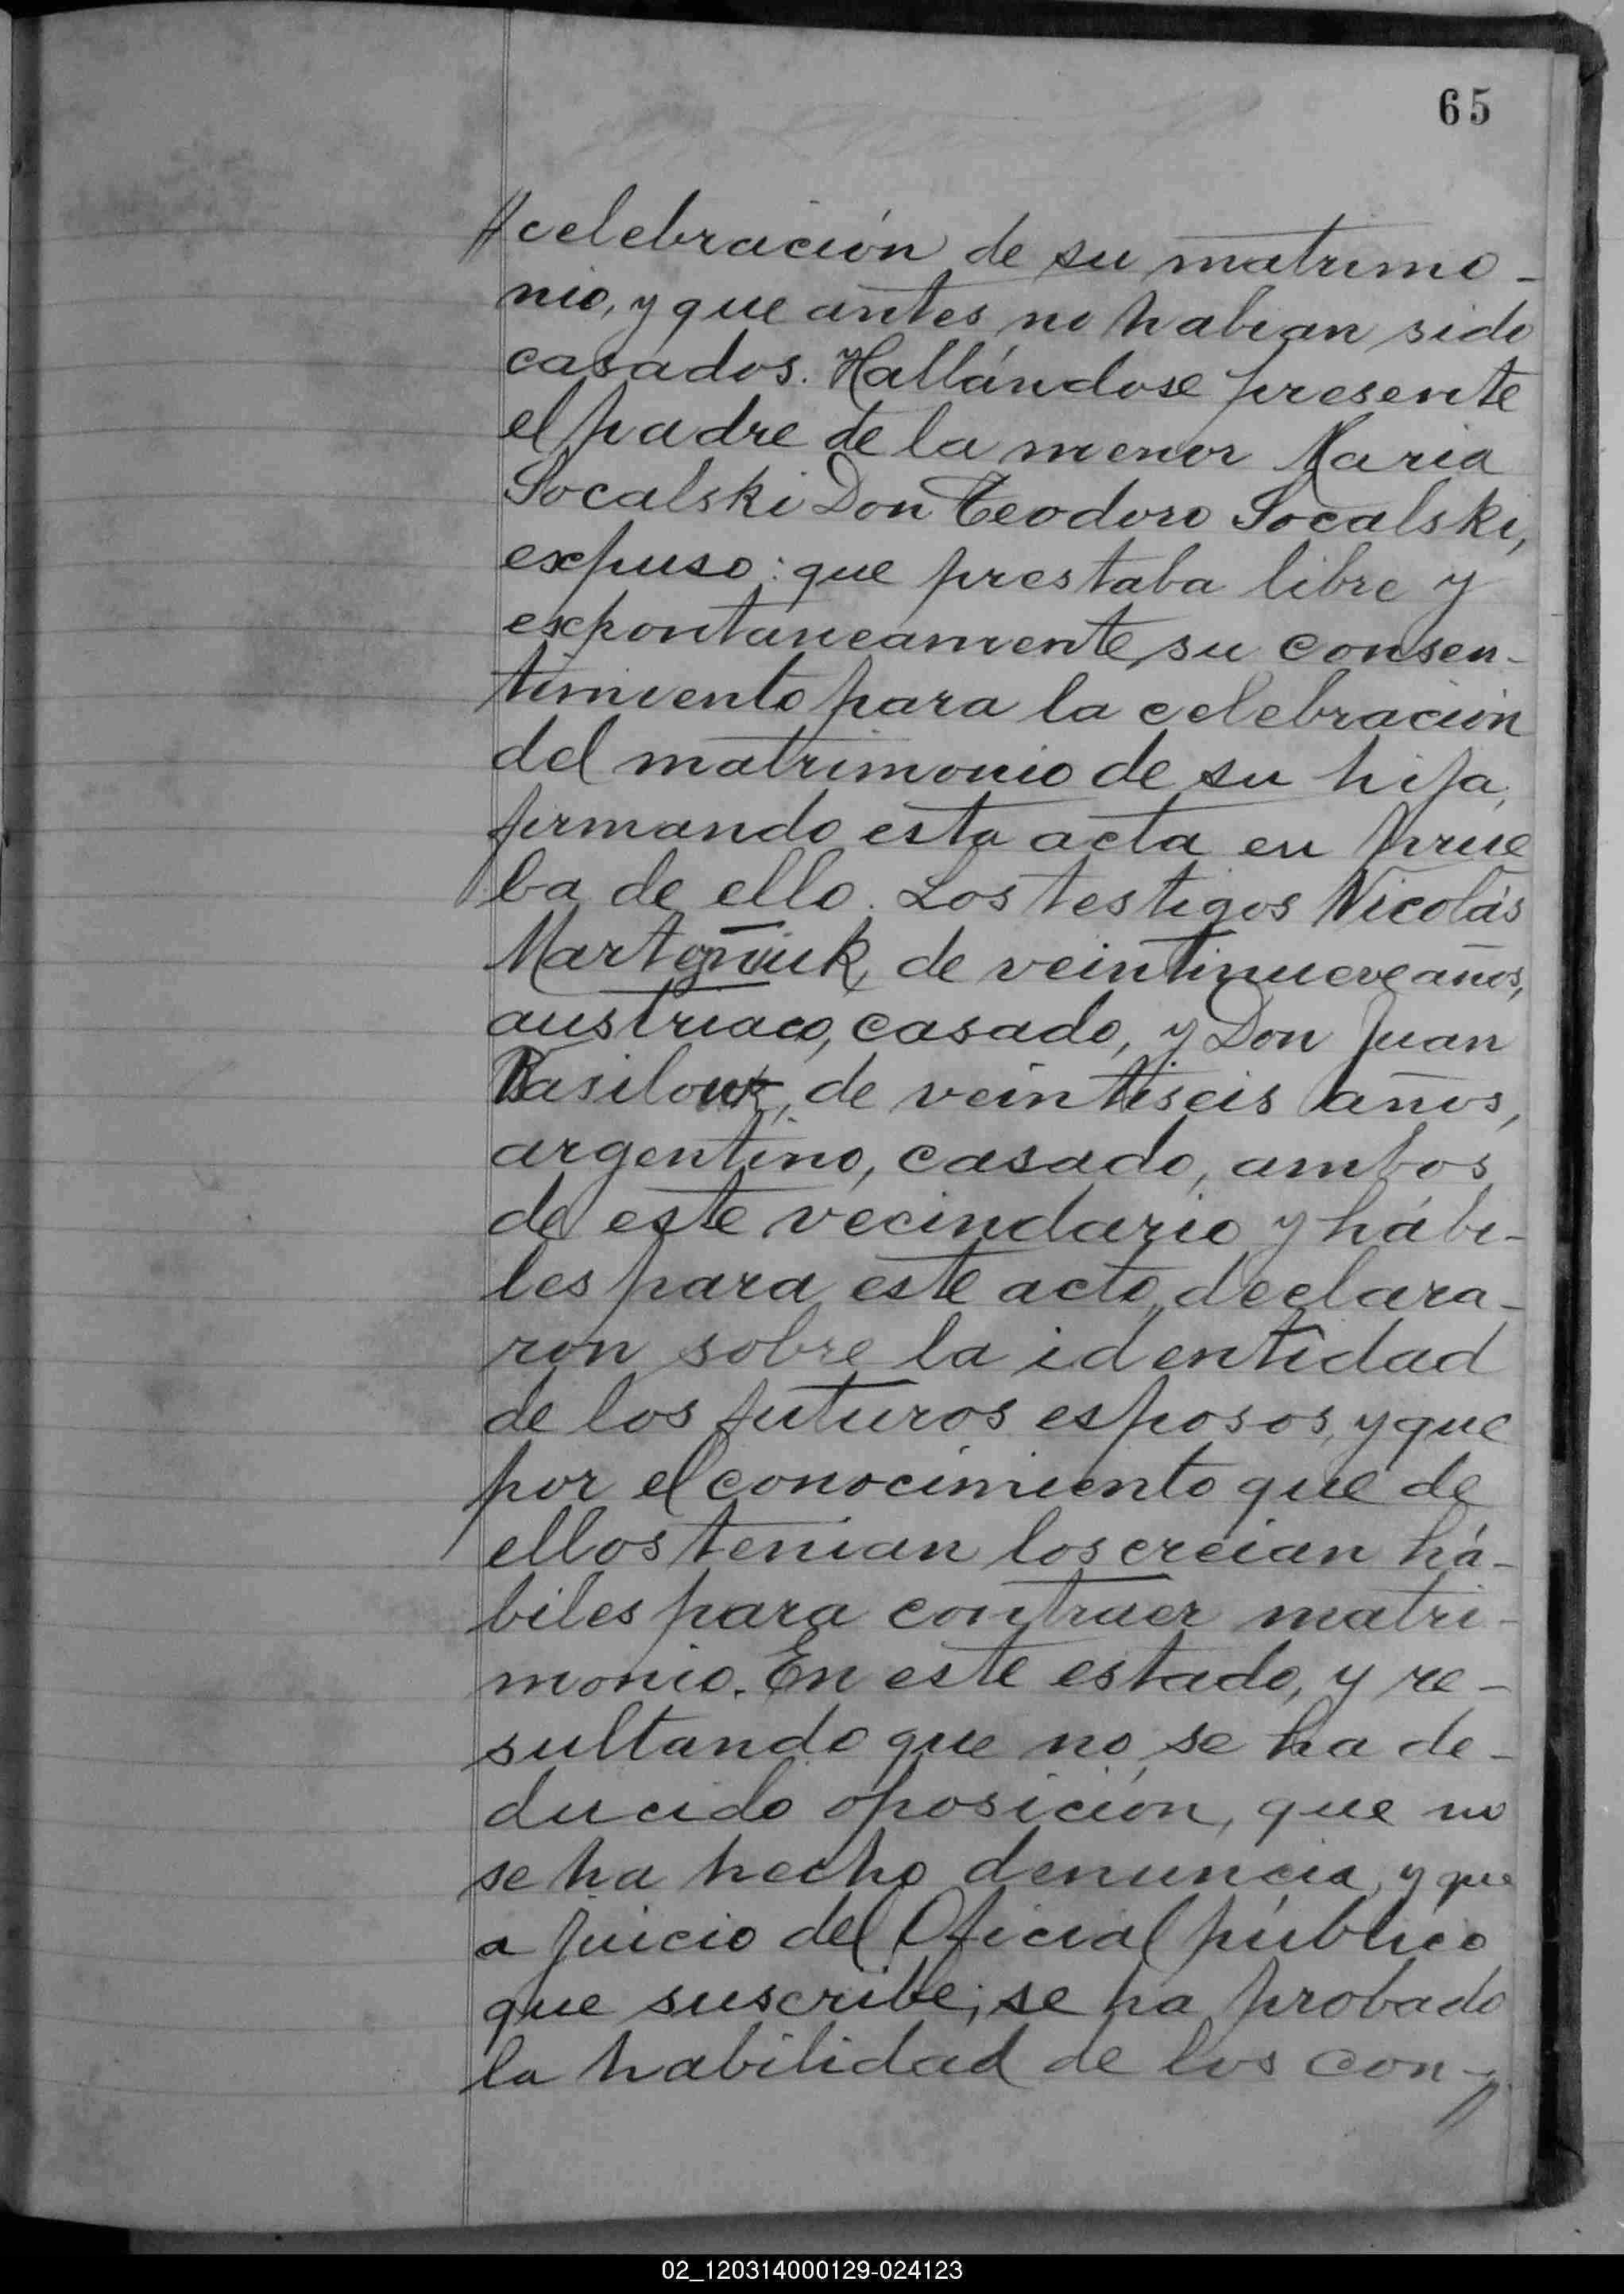 65
//celebración de su matrimo-
nio, y que antes no habian sido
casados. Hallándose presente
el padre de la menor Maria
Socalski Don Teodoro Socalski,
expuso: que prestaba libre y
expontaneamente su consen-
timiento para la celebración
del matrimonio de su hija,
firmando esta acta en prue
ba de ello. Los testigos Nicolás
de veintinueve años,
austriaco, casado, y Don Juan
de veintiseis años,
argentino, casado, ambos
de este vecindario y hábi-
les para este acto, declara-
ron sobre la identidad
de los futuros esposos, y que
por el conocimiento que de
ellos tenian los creian há-
biles para contraer matri-
monio. En este estado, y re-
sultando que no se ha de-
ducido oposición, que no
se ha hecho denuncia, y que
a juicio del Oficial público
que suscribe; se ha probado
la habilidad de los con-//
02_120314000129-024123